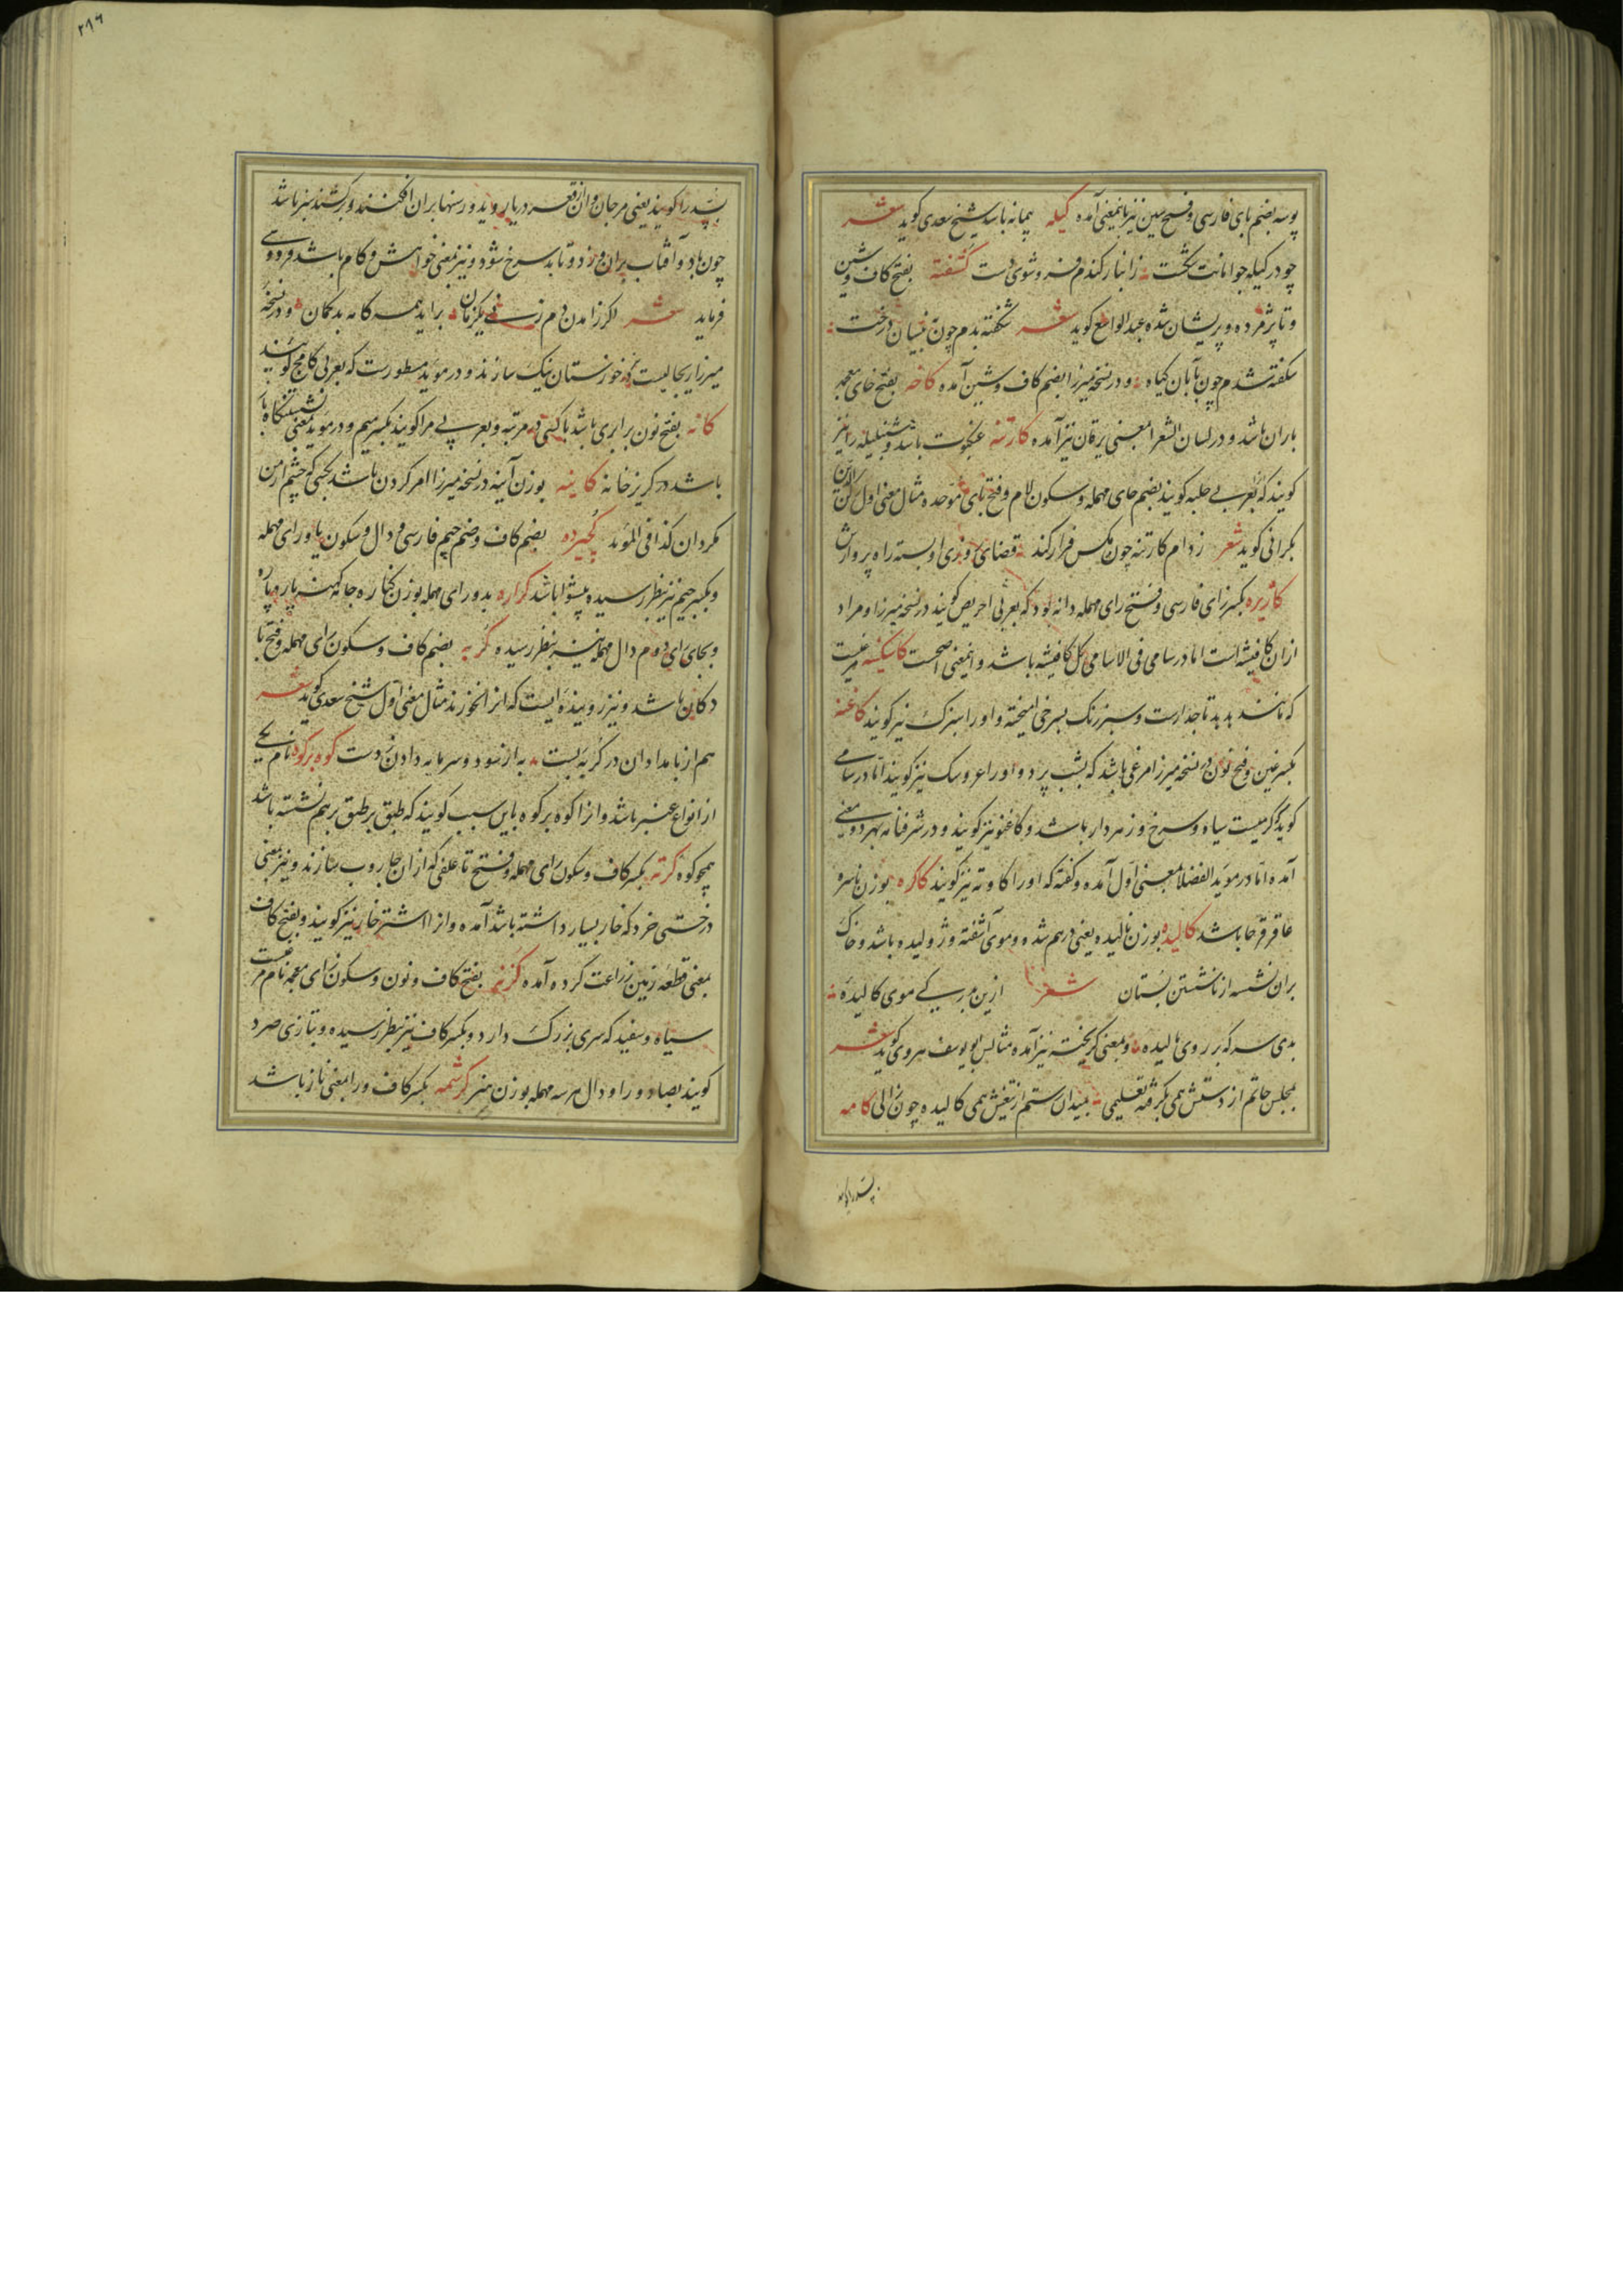 پوسه بضم بای فارسی و فتح سین نیز باینمعنی آمده کیله پیمانه باشد شیخ سعدی کوید شعر
چو در کیله جو امانت نکشت ز انبار کندم فرو شوی دست کشفته بفتح کاف و شین
و تا پژمرده و پریشان شده عبدالواسع کوید شعر شکفته بدم چون درخت
شکفته شدم چون کیاه و در نسخه میرزا بضم کاف و شین آمده کاخه بفتح خای معجمه
باران باشد و در لسان الشعرا بمعنی یرقان نیز آمده کارتنه عنکبوت باشد و شنبلیله را نیز
کویند که بعربی حلبه کویند بضم حای مهمله و سکون لام و فتح بای موحده مثال معنی اول
کوید شعر ز دام کارتنه چون مکس فرار کند قضای روزی او بسته راه پروازش
کاژیره بکسر زای فارسی و فتح رای مهمله دانه بود که بعربی احریض کویند در نسخه میرزا و مراد
ازان کافیشه است اما در سامی فی الاسامی کل کافیشه باشد و اینمعنی اصحست کاسکینه مرغیست
که مانند بدبد تاجدارست و سبزرنک بسرخی آمیخته و اورا سبزک نیز کویند کاغنه
بکسر غین و فتح نون در نسخه میرزا مرغی باشد که بشب پرد و اورا عروسک نیز کویند اما در سامی
کوید کرمیست سیاه و سرخ و زهردار باشد و کاغنو نیز کویند و در شرفنامه بهر دو معنی
آمده اما در موید الفضلا بمعنی اول آمده و کفته که اورا کاوته نیز کویند کاکره بوزن ناسره
عاقرقرحا باشد کالیده بوزن نالیده یعنی درهم شده و موی آشفته و ژولیده باشد و خاک
بران نشسته از ناشستن بستان شعر ازین مدبریکی موی کالیده
بدی سرکه بر روی مالیده و بمعنی کریخته نیز آمده مثالش ابویوسف هروی کوید شعر
بمجلس حاتم از دستش همی بکرفته تعلیمی بمیدان رستم از تیغش همی کالیده چون زالی کامه
بسد را کویند یعنی مرجان و آن از قعر دریا روید و رسنها بران افکنند و برکشند سبز باشد
چون باد و آفتاب بران وزد و تابد سرخ شود و نیز بمعنی خواهش و کام باشد فردوسی
فرماید شعر اکر ز آمدن دم زنی یکزمان براید همه کامه بدکمان و در نسخه
میرزا ریچالیست که در خوزستان نیک سازند و در موید مسطورست که بعربی کامخ کویند
کانه بفتح نون برابری باشد با کسی در مرتبه و بعربی مرا کویند بکسر میم و در موید بمعنی نشستنکاه باز
باشد در کریزخانه کاینه بوزن آینه در نسخه میرزا امر کردن باشد بکسی که چشم از من
مکردان کذا فی الموید کجیرده بضم کاف و ضم جیم فارسی و دال و سکون یا و رای مهمله
و بکسر جیم نیز بنظر رسیده پیشوا باشد کراره بدو رای مهمله بوزن کناره جامه کهنه پاره پاره
و بجای رای دوم دال مهمله نیز بنظر رسیده کربه بضم کاف و سکون رای مهمله و فتح با
دکان باشد و نیز روینده ایست که انرا خورند مثال معنی اول شیخ سعدی کوید شعر
هم از بامدادان در کربه بست به از سود و سرمایه دادن ز دست کوه برکوه نام یکی
از انواع عنبر باشد و انرا کوه برکوه باین سبب کویند که طبق بر طبق برهم نشسته باشد
همچو کوه کرته بکسر کاف و سکون رای مهمله و فتح تا علفی که از ان جاروب سازند و نیز بمعنی
درختی خرد که خار بسیار داشته باشد آمده و انرا اشترخار نیز کویند و بفتح کاف
بمعنی قطعه زمین زراعت کرده آمده بفتح کاف و نون و سکون زای معجمه نام مرغیست
سیاه و سفید که سری بزرک دارد و بکسر کاف نیز بنظر رسیده و بتازی صرد
کویند بصاد و را و دال هر سه مهمله بوزن هنر کرشمه بکسر کاف و را بمعنی ناز باشد